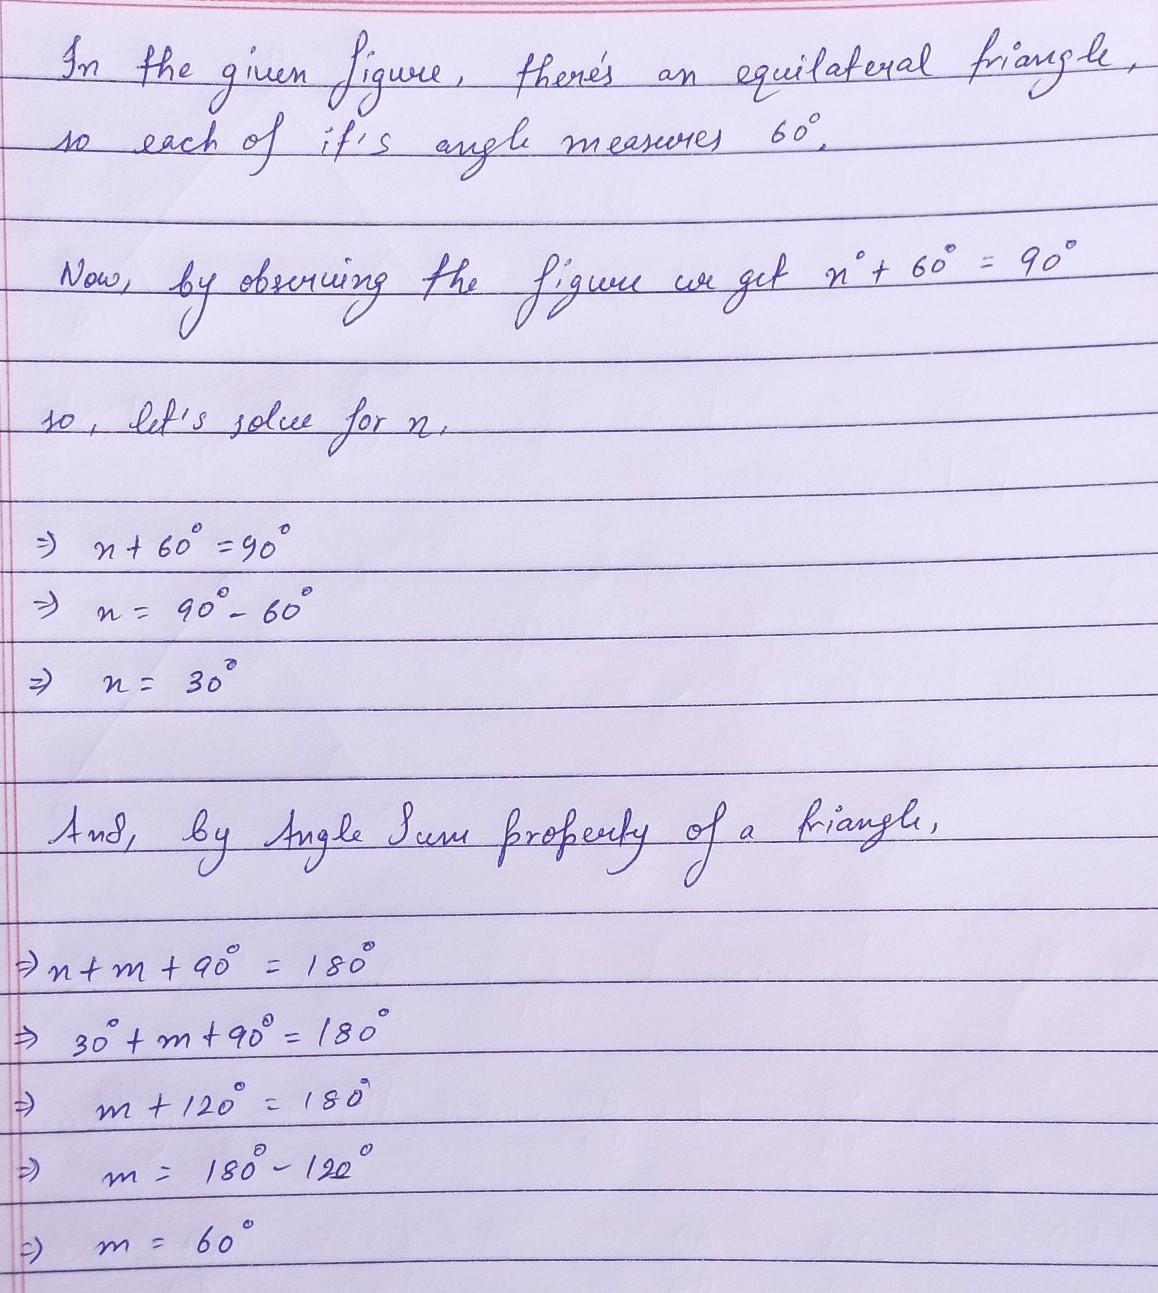 In the given figure, there's an equilateral triangle,
so each of it's angle measures 60°.
Now, by observing the figure we get n° + 60° = 90°
so, let's solve for n,
⇒ n + 60° = 90°
⇒ n = 90° - 60°
⇒ n = 30°
And, by Angle Sum property of a triangle,
⇒ n + m + 90° = 180°
⇒ 30° + m + 90° = 180°
⇒ m + 120° = 180°
⇒ m = 180° - 120°
⇒ m = 60°